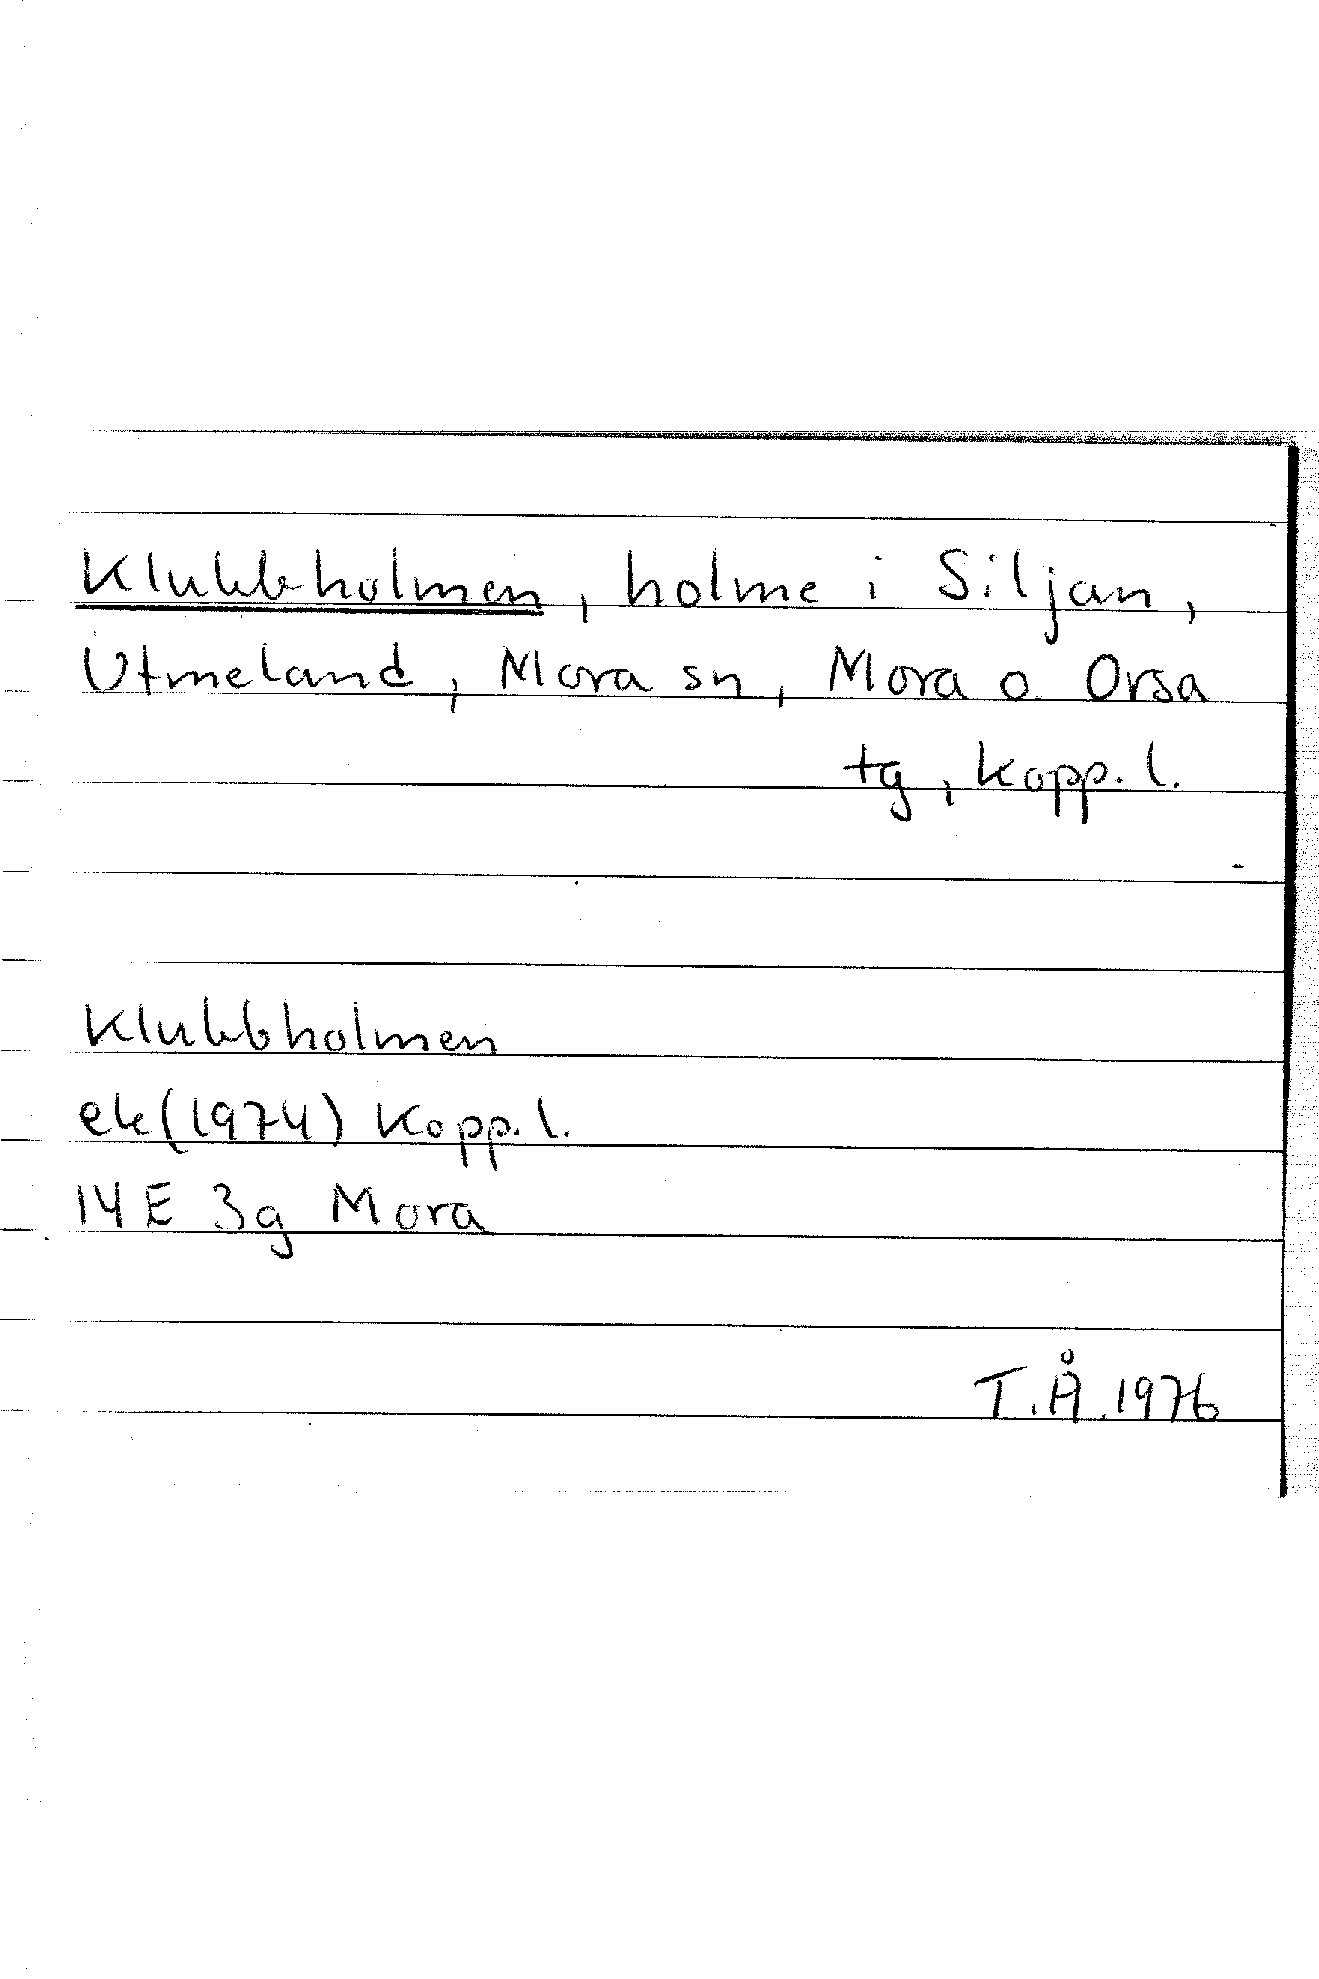 Klubbholmen, holme i Siljan,
Utmeland, Mora sn, Mora o. Orsa
tg, Kopp. l.
Klubbholmen
ek (1974) Kopp. l.
14 E 3g Mora
T.Å. 1976